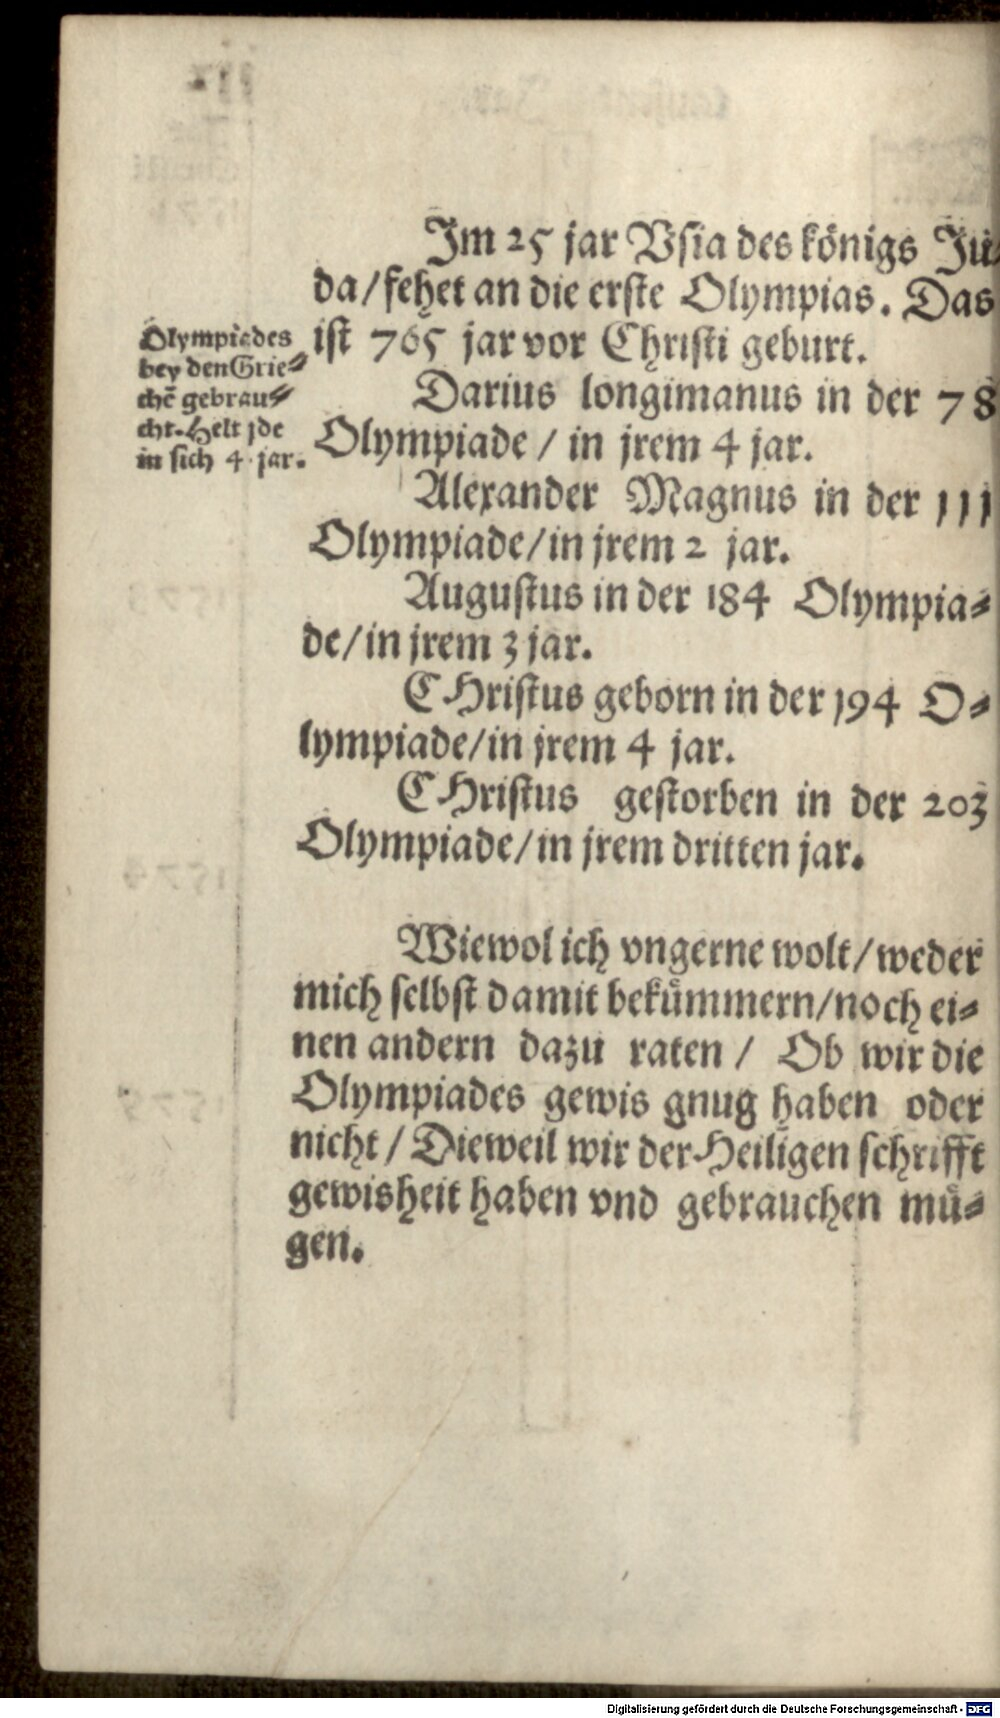 Im 25 jar Vsia des königs Ju⸗
da/fehet an die erste Olympias. Das
ist 765 jar vor Christi geburt.
Olympiades
bey den Grie⸗
chē gebrau⸗
cht. Helt jde
in sich 4 jar.
Darius longimanus in der 78
Olympiade / in jrem 4 jar.
Alexander Magnus in der 111
Olympiade/in jrem 2 jar.
Augustus in der 184 Olympia⸗
de/in jrem 3 jar.
CHristus geborn in der 194 O⸗
lympiade/in jrem 4 jar.
CHristus gestorben in der 203
Olympiade/in jrem dritten jar.
Wiewol ich vngerne wolt/weder
mich selbst damit bekümmern/noch ei⸗
nen andern dazu raten / Ob wir die
Olympiades gewis gnug haben oder
nicht / Dieweil wir der Heiligen schrifft
gewisheit haben vnd gebrauchen mü⸗
gen.
Digitalisierung gefördert durch die Deutsche Forschungsgemeinschaft - DFG